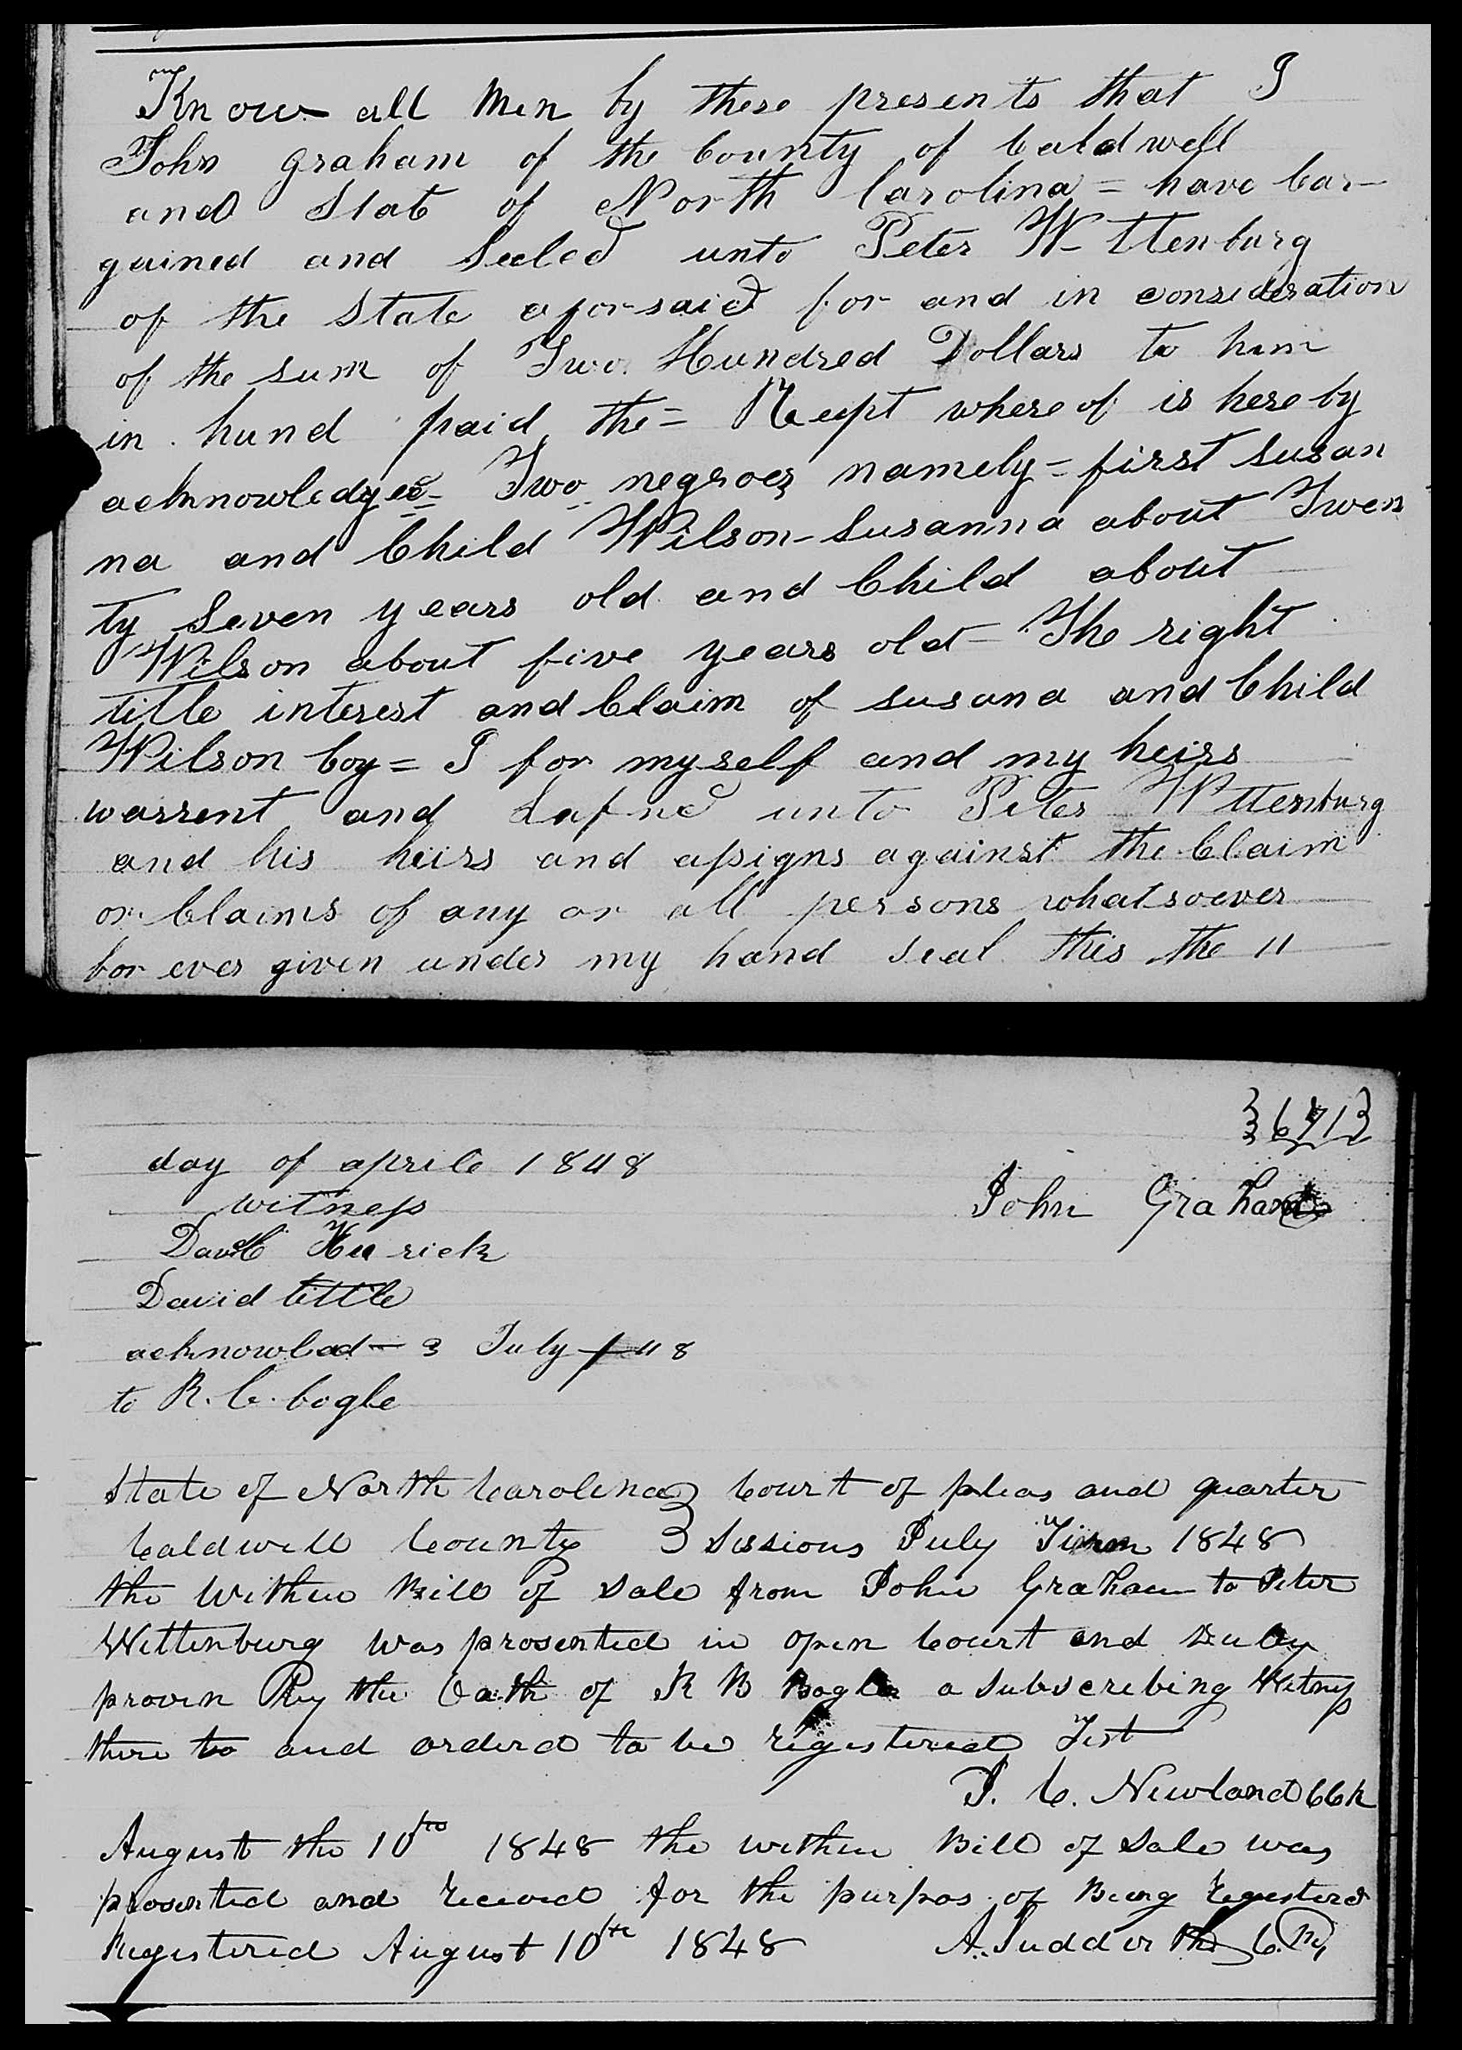 Know all Men by these presents that I
John Graham of the County of Caldwell
and State of North Carolina = have bar-
gained and Seeled unto Peter Wittenburg
of the State aforsaid for and in consideration
of the sum of Two Hundred Dollars to him
in hand paid the = whereof is hereby
acknowledged = Two negroes namely = first Susan
na and Child Wilson - Susanna about Twen
ty Seven years old and Child about
Wilson about five years old - The right
title interest and Claim of Susana and Child
Wilson boy = I for myself and my heirs
warrent and unto Peter Wittenburg
and his heirs and assigns against the Claim
or Claims of any or all persons whatsoever
for ever given under my hand seal this the 11
671
day of aprile 1848
John Graham
witness
David
David little
acknowled - 3 July 48
to R. C. bogle
State of North Carolina } Court of pleas and quarter
Caldwell County } Sissions July Tirm 1848
the within Bill of Sale from John Graham to Peter
Wittenburg was prosented in open Court and Duly
proven By the Oath of R B Bogle a Subscribing Witness
there to and orderd to be registered Test
C. Newland CCk
August the 10th 1848 the within Bill of Sale was
prosented and receved for the purpos of Being registerd
Registered August 10th 1848 A. Sudderth C. R,